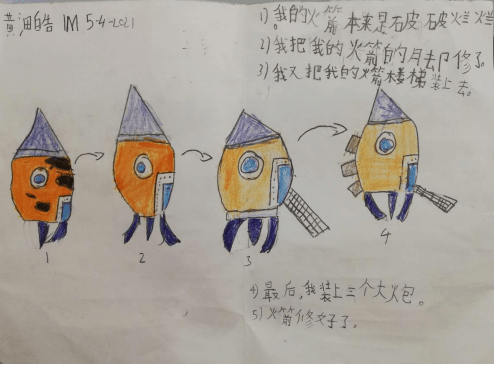 黄海皓 1M 5-4-2021
1) 我的火箭本来是石皮石皮火兰火兰。
2) 我把我的火箭的月去卩修了。
3) 我又把我的火箭楼梯装上去。
1
2
3
4
4) 最后,我装上三个大火包。
5) 火箭修好了。